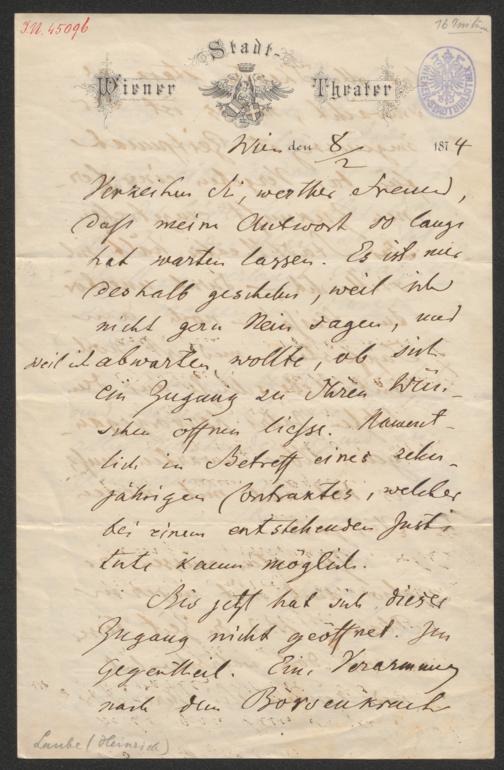 I.N. 45096
Stadt-
Wiener Theater
Wien den 8/2 1874
Verzeihen Sie, werther Freund,
daß meine Antwort so lange
hat warten lassen. Es ist nur
deshalb geschehn, weil ich
nicht gern Nein sagen, und
weil ich abwarten wollte, ob sich
ein Zugang zu Ihren Wün-
schen öffnen ließe. Nament-
lich in Betreff eines zehn-
jährigen Contraktes, welcher
bei einem entstehenden Insti-
tute kaum möglich.
Bis jetzt hat sich dieser
Zugang nicht geöffnet. Im
Gegentheil. Eine Verarmung
nach dem Börsenkrach
Laube (Heinrich)